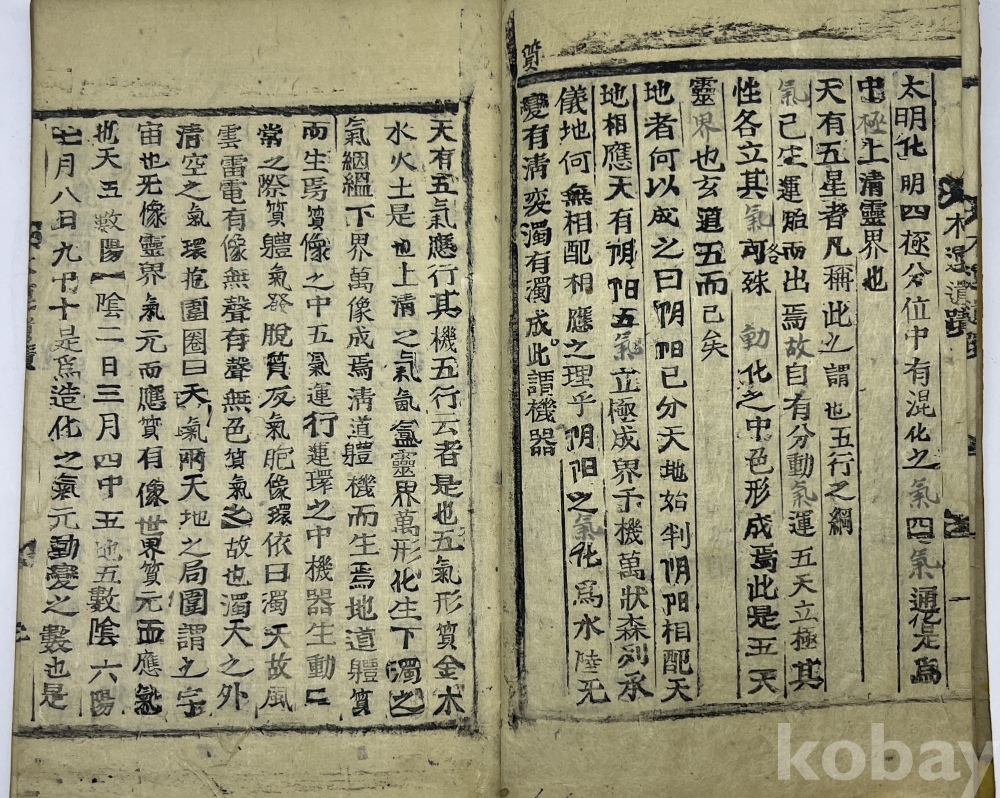 太明化明四極分位中有混化之氣四氣通化是爲
中極上清靈界也
天有五星者凡稱此之謂也五行之綱
氣已生運胎而出焉故自有分動氣運五天立極其
性各立其氣可殊各動化之中色形成焉此是五天
靈界也玄道五而已矣
地者何以成之曰阴阳已分天地始判阴阳相配天
地相應天有阴阳五氣立極成界于機萬狀森列承
儀地何無相配相應之理乎阴阳之氣化爲水陸无
變有清变濁有濁成此謂機器
質
木運遺蹟
一
天有五氣應行其機五行云者是也五氣形質金木
水火土是也上清之氣氤氳靈界萬形化生下濁之
氣絪縕下界萬像成焉清道軆機而生焉地道軆質
而生焉質像之中五氣運行連環之中機器生動二
常之際質軆氣發脫質反氣胞像環依曰濁天故風
雲雷電有像無聲有聲無色質氣之故也濁天之外
清空之氣環抱圍圈曰天氣兩天地之局圍謂之宇
宙也无像靈界氣元而應質有像世界質元而應氣
也天五數陽一陰二日三月四中五地五數陰六陽
七月八日九中十是爲造化之氣元動變之數也是
kobay